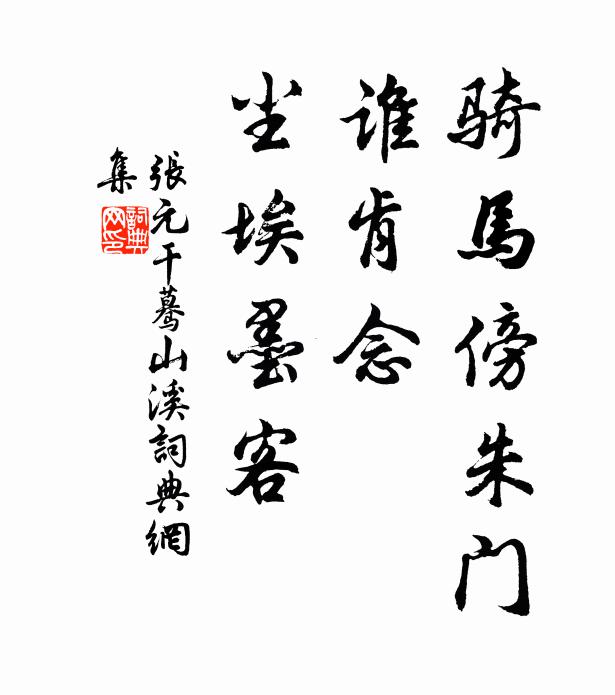 骑馬傍朱门
谁肯念
尘埃墨客
張元干蓦山溪詞典網
集
詞典网印